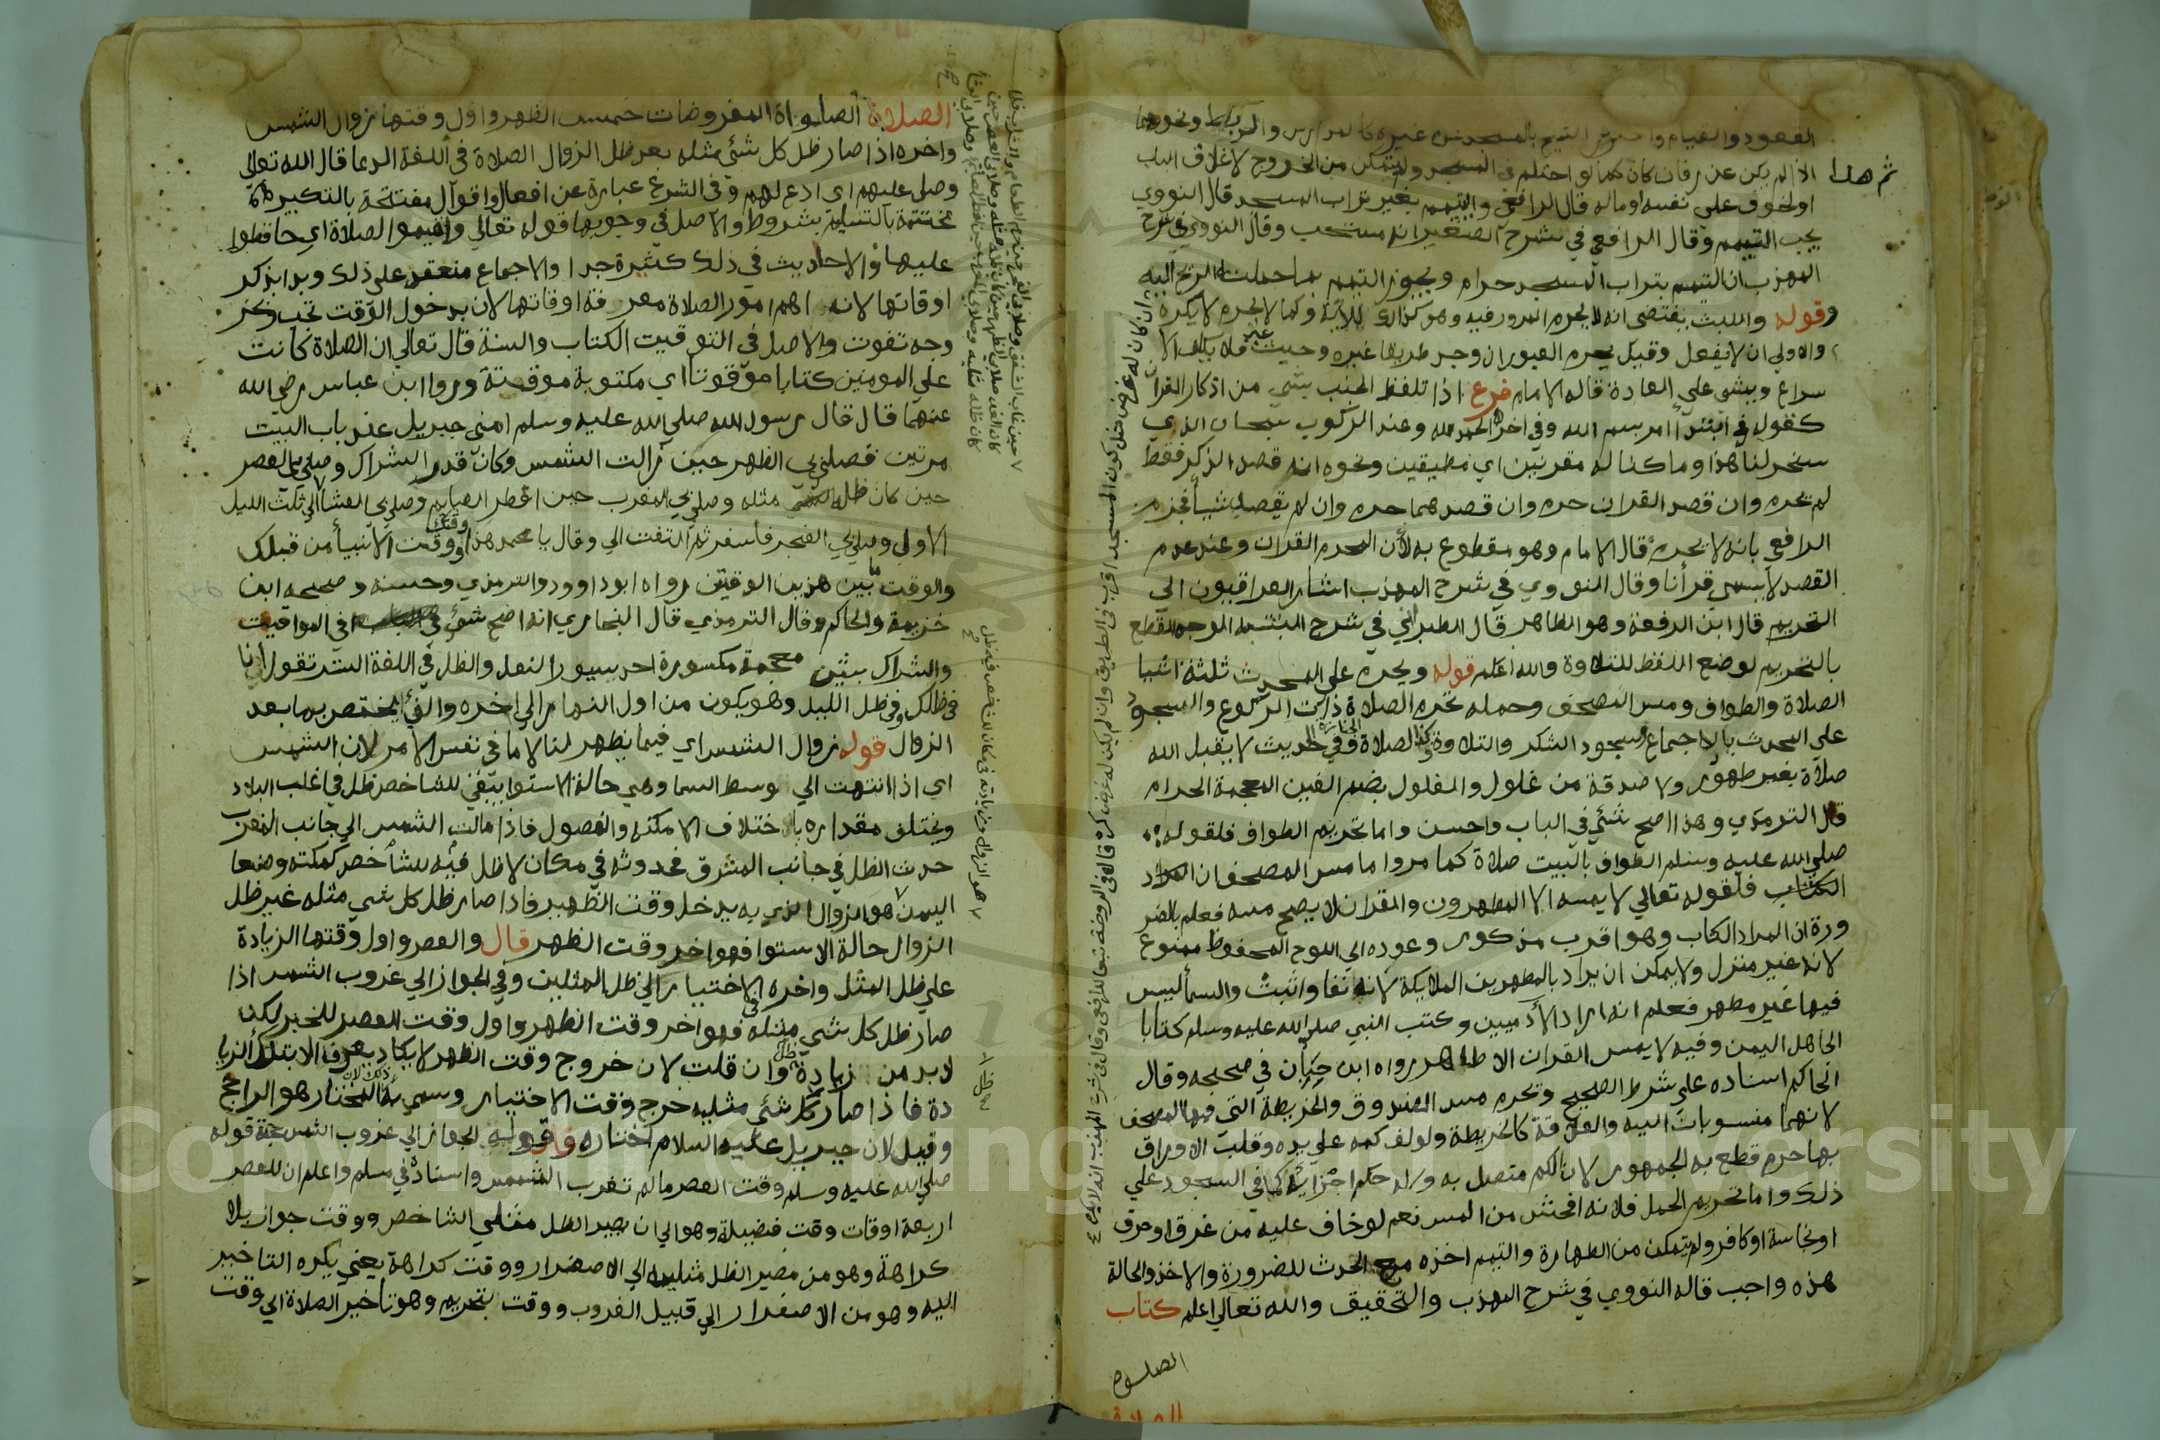 القعود والقيام واحترز بالمسجد عن غيره كالمدارس والربط ونحوهما
ثم هذا الا لم يكن عذر فان كان كما لو احتلم في المسجد ولم يتمكن من الخروج لاغلاق الباب
او لخوف على نفسه او ماله قال الرافعي والتيمم بغير تراب المسجد قال النووي
يجب التيمم وقال الرافعي في شرح الصغير انه مستحب وقال النووي في شرح
المهذب ان التيمم بتراب المسجد حرام ويجوز التيمم بما حملت الريح اليه
وقوله واللبث يقتضى انه لا يحرم المرور فيه وهو كذلك للاية وكما لا يحرم لا يكره
والاولى ان لا يفعل وقيل يحرم العبور ان وجد طريقا غيره وحيث عبر فلا يكلف الا
سراع ويمشى على العادة قاله الامام فرع اذا تلفظ الجنب بشي من اذكار القران
كقوله في ابتداء امر بسم الله وفي اخره الحمد لله وعند الركوب سبحان الذي
سخر لنا هذا وما كنا له مقرنين اي مطيقين ونحوه انه قصد الذكر فقط
لم يحرم وان قصد القران حرم وان قصدهما حرم وان لم يقصد شيأ فجزم
الرافعي بانه لا يحرم قال الامام وهو مقطوع به لأن المحرم القران وعند عدم
القصد لا يسمى قرأنا وقال النووي في شرح المهذب اشار العراقيون الى
التحريم قال ابن الرفعة وهو الظاهر قال الطبراني في شرح التنبيه الوجه القطع
بالتحريم لوضع اللفظ للتلاوة والله اعلم قوله ويحرم على المحدث ثلثة اشيا
الصلاة والطواف ومس المصحف وحمله تحرم الصلاة ذات الركوع والسجود
على المحدث بالاجماع وسجود الشكر والتلاوة كالصلاة وفي الحديث لا يقبل الله
صلاة بغير طهور ولا صدقة من غلول والغلول بضم الغين المعجمة الحرام
قال الترمذي وهذا اصح شئ في الباب واحسن واما تحريم الطواف فلقوله
صلى الله عليه وسلم الطواف بالبيت صلاة كما مر واما مس المصحف ان المراد
الكتاب فلقوله تعالى لا يمسه الا المطهرون والقران لا يصح مسه فعلم بالضر
ورة ان المراد الكتاب وهو اقرب مذكور وعوده الى اللوح المحفوظ ممنوع
لانه غير منزل ولا يمكن ان يراد بالمطهرين الملايكة لانه نفا واثبت والسمأ ليس
فيها غير مطهر فعلم انه اراد الأدميين وكتب النبي صلى الله عليه وسلم كتابا
الى اهل اليمن وفيه لا يمس القران الا طاهر رواه ابن حبان في صحيحه وقال
الحاكم اسناده على شرط الصحيح وتحرم مس الصندوق والخريطة التي فيها المصحف
لانهما منسوبات اليه والعلاقة كالخريطة ولو لف كمه على يده وقلب الاوراق
بها حرم قطع به الجمهور لان الكم متصل به وله حكم اجزائه كما في السجود علي
ذلك واما تحريم الحمل فلانه افحش من المس نعم لو خاف عليه من غرق او حرق
او نجاسة او كافر ولم يتمكن من الطهارة والتيمم اخذه مع الحدث للضرورة والاخذ والحالة
هذه واجب قاله النووي في شرح المهذب والتحقيق والله تعالى اعلم كتاب
الصلوه
الصلاة الصلواة المفروضات خمس الظهر واول وقتها زوال الشمس
واخره اذا صار ظل كل شئ مثله بعد ظل الزوال الصلاة في اللغة الدعا قال الله تعالى
وصل عليهم اى ادع لهم وفي الشرع عبارة عن افعال واقوال مفتتحة بالتكبير
مختتمة بالتسليم بشروط والاصل في وجوبها قوله تعالى واقيموا الصلاة اى حافظوا
عليها والاحاديث في ذلك كثيرة جدا والاجماع منعقد على ذلك وبدا بذكر
اوقاتها لانه اهم امور الصلاة معرفة اوقاتها لان بدخول الوقت تجب وبخر
وجه تفوت والاصل في التوقيت الكتاب والسنة قال تعالى ان الصلاة كانت
على المومنين كتابا موقوتا اي مكتوبة موقتة وروا ابن عباس رضي الله
عنهما قال قال رسول الله صلى الله عليه وسلم امني جبريل عند باب البيت
مرتين فصلى بي الظهر حين زالت الشمس وكان قدر الشراك وصلى بي العصر
حين كان ظله مثله وصلى بي المغرب حين افطر الصايم وصلى بي العشا الى ثلث الليل
الاول وصلى بي الفجر فاسفر ثم التفت الي وقال يا محمد هذا ووقت الأنبيأ من قبلك
والوقت ما بين هذين الوقتين رواه ابو داوود والترمذي وحسنه وصححه ابن
خزيمة والحاكم وقال الترمذي قال البخاري انه اصح شئ في المواقيت
والشراك بشين معجمة مكسورة احد سيور النعل والظل في اللغة الستر تقول انا
في ظلك وفي ظل الليل وهو يكون من اول النهار الى اخره والفئ يختص بما بعد
الزوال قوله زوال الشمس اي فيما يظهر لنا لا ما في نفس الامر لان الشمس
اى اذا انتهت الي وسط السما وهي حالة الاستوا يبقى للشاخص ظل في اغلب البلاد
ويختلف مقداره باختلاف الامكنة والفصول فاذا مالت الشمس الي جانب المغرب
حدث الظل في جانب المشرق فحدوثه في مكان لا ظل فيه للشأخص كمكة وصنعا
اليمن هو الزوال الذى به يدخل وقت الظهر فاذا صار ظل كل شي مثله غير ظل
الزوال حالة الاستوا فهو اخر وقت الظهر قال والعصر واول وقتها الزيادة
على ظل المثل واخره الاختيار الى ظل المثلين وفي الجواز الي غروب الشمس اذا
صار ظل كل شي مثله فهو اخر وقت الظهر واول وقت العصر للخبر لكن
لابد من زيادة ظل وان قلت لان خروج وقت الظهر لا يكاد يعرف الا بتلك الزيا
دة فاذا صار كل شئ مثليه خرج وقت الاختيار وسمي بذلك لان المختار هو الراجح
وقيل لان جبريل عليه السلام اختاره وقوله الجواز الي غروب الشمس حجته قوله
صلى الله عليه وسلم وقت العصر ما لم تغرب الشمس واسناده في مسلم واعلم ان للعصر
اربعة اوقات وقت فضيلة وهو الي ان يصير الظل مثلي الشاخص ووقت جواز بلا
كراهة وهو من مصير الظل مثليه الي الاصفرار ووقت كراهة يعني يكره التاخير
اليه وهو من الاصفرار الي قبيل الغروب ووقت تحريم وهو تأخير الصلاة الي وقت